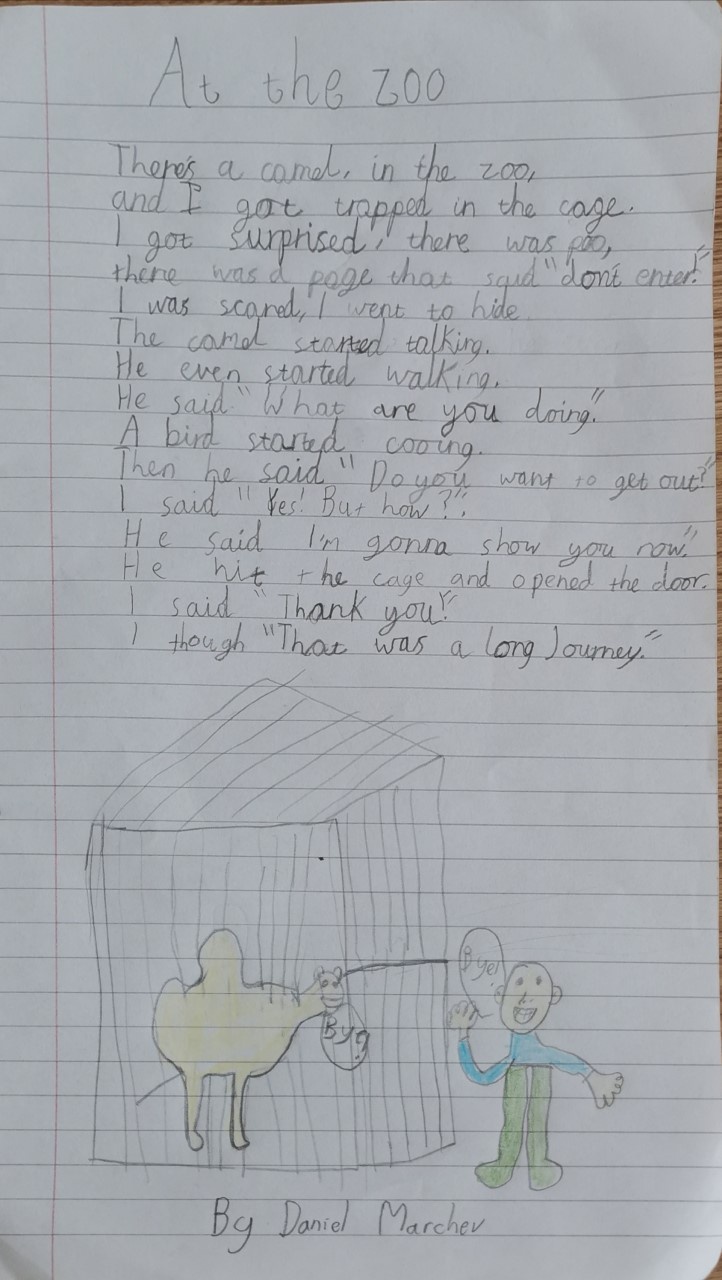 At the zoo
There's a camel, in the zoo,
and I got trapped in the cage.
I got surprised, there was poo,
there was a page that said "don't enter!"
I was scared, I went to hide
The camel started talking.
He even started walking.
He said "What are you doing."
A bird started cooing.
Then he said "Do you want to get out?"
I said "Yes! But how?".
He said I'm gonna show you now."
He hit the cage and opened the door.
I said "Thank you!"
I though "That was a long Journey."
Bye!
Bye
By Daniel Marchev